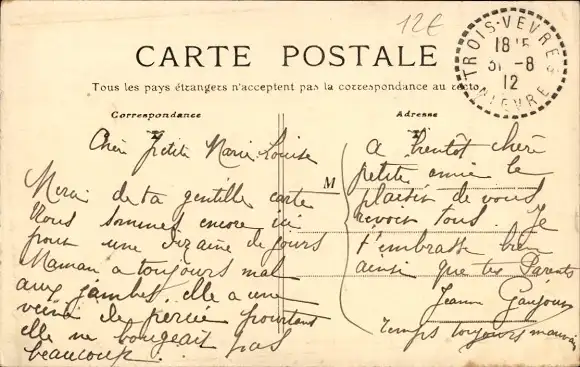 12€
CARTE POSTALE
Tous les pays étrangers n'acceptent pas la correspondance au recto
TROIS-VEVRES
18 15
31 -8
12
NIEVRE
Correspondance
Chère Petite Marie Louise
Merci de ta gentille carte
Nous sommes encore ici
pour une dizaine de jours
Maman a toujours mal
aux jambes, elle a une
veine de percée pourtant
elle ne bougeait pas
beaucoup.
Adresse
M
A bientôt chère
petite amie le
plaisir de vous
revoir tous. Je
t'embrasse bien
ainsi que tes Parents
Jeanne
temps toujours mauvais